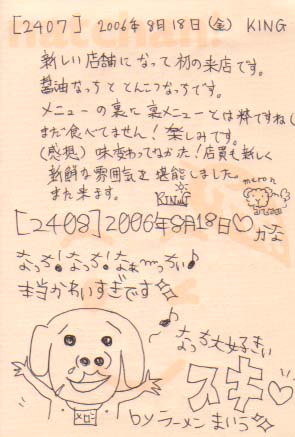 [2407] 2006年8月18日(金) KING
新しい店舗になって初の来店です。
醤油なっちととんこつなっちです。
メニューの裏に裏メニューとは粋ですね(
まだ食べてません！楽しみです。
(感想) 味変わってなかった！店員も新しく
新鮮な雰囲気を堪能しました。
また来ます。
KING
meron
[2408] 2006年8月18日♡
かな
なっち！なっち！なぁ〜っちぃ♪
本当かわいすぎです☆
♪
なっち大好きぃ
スキ♡
メロン
byラーメン まいう☆